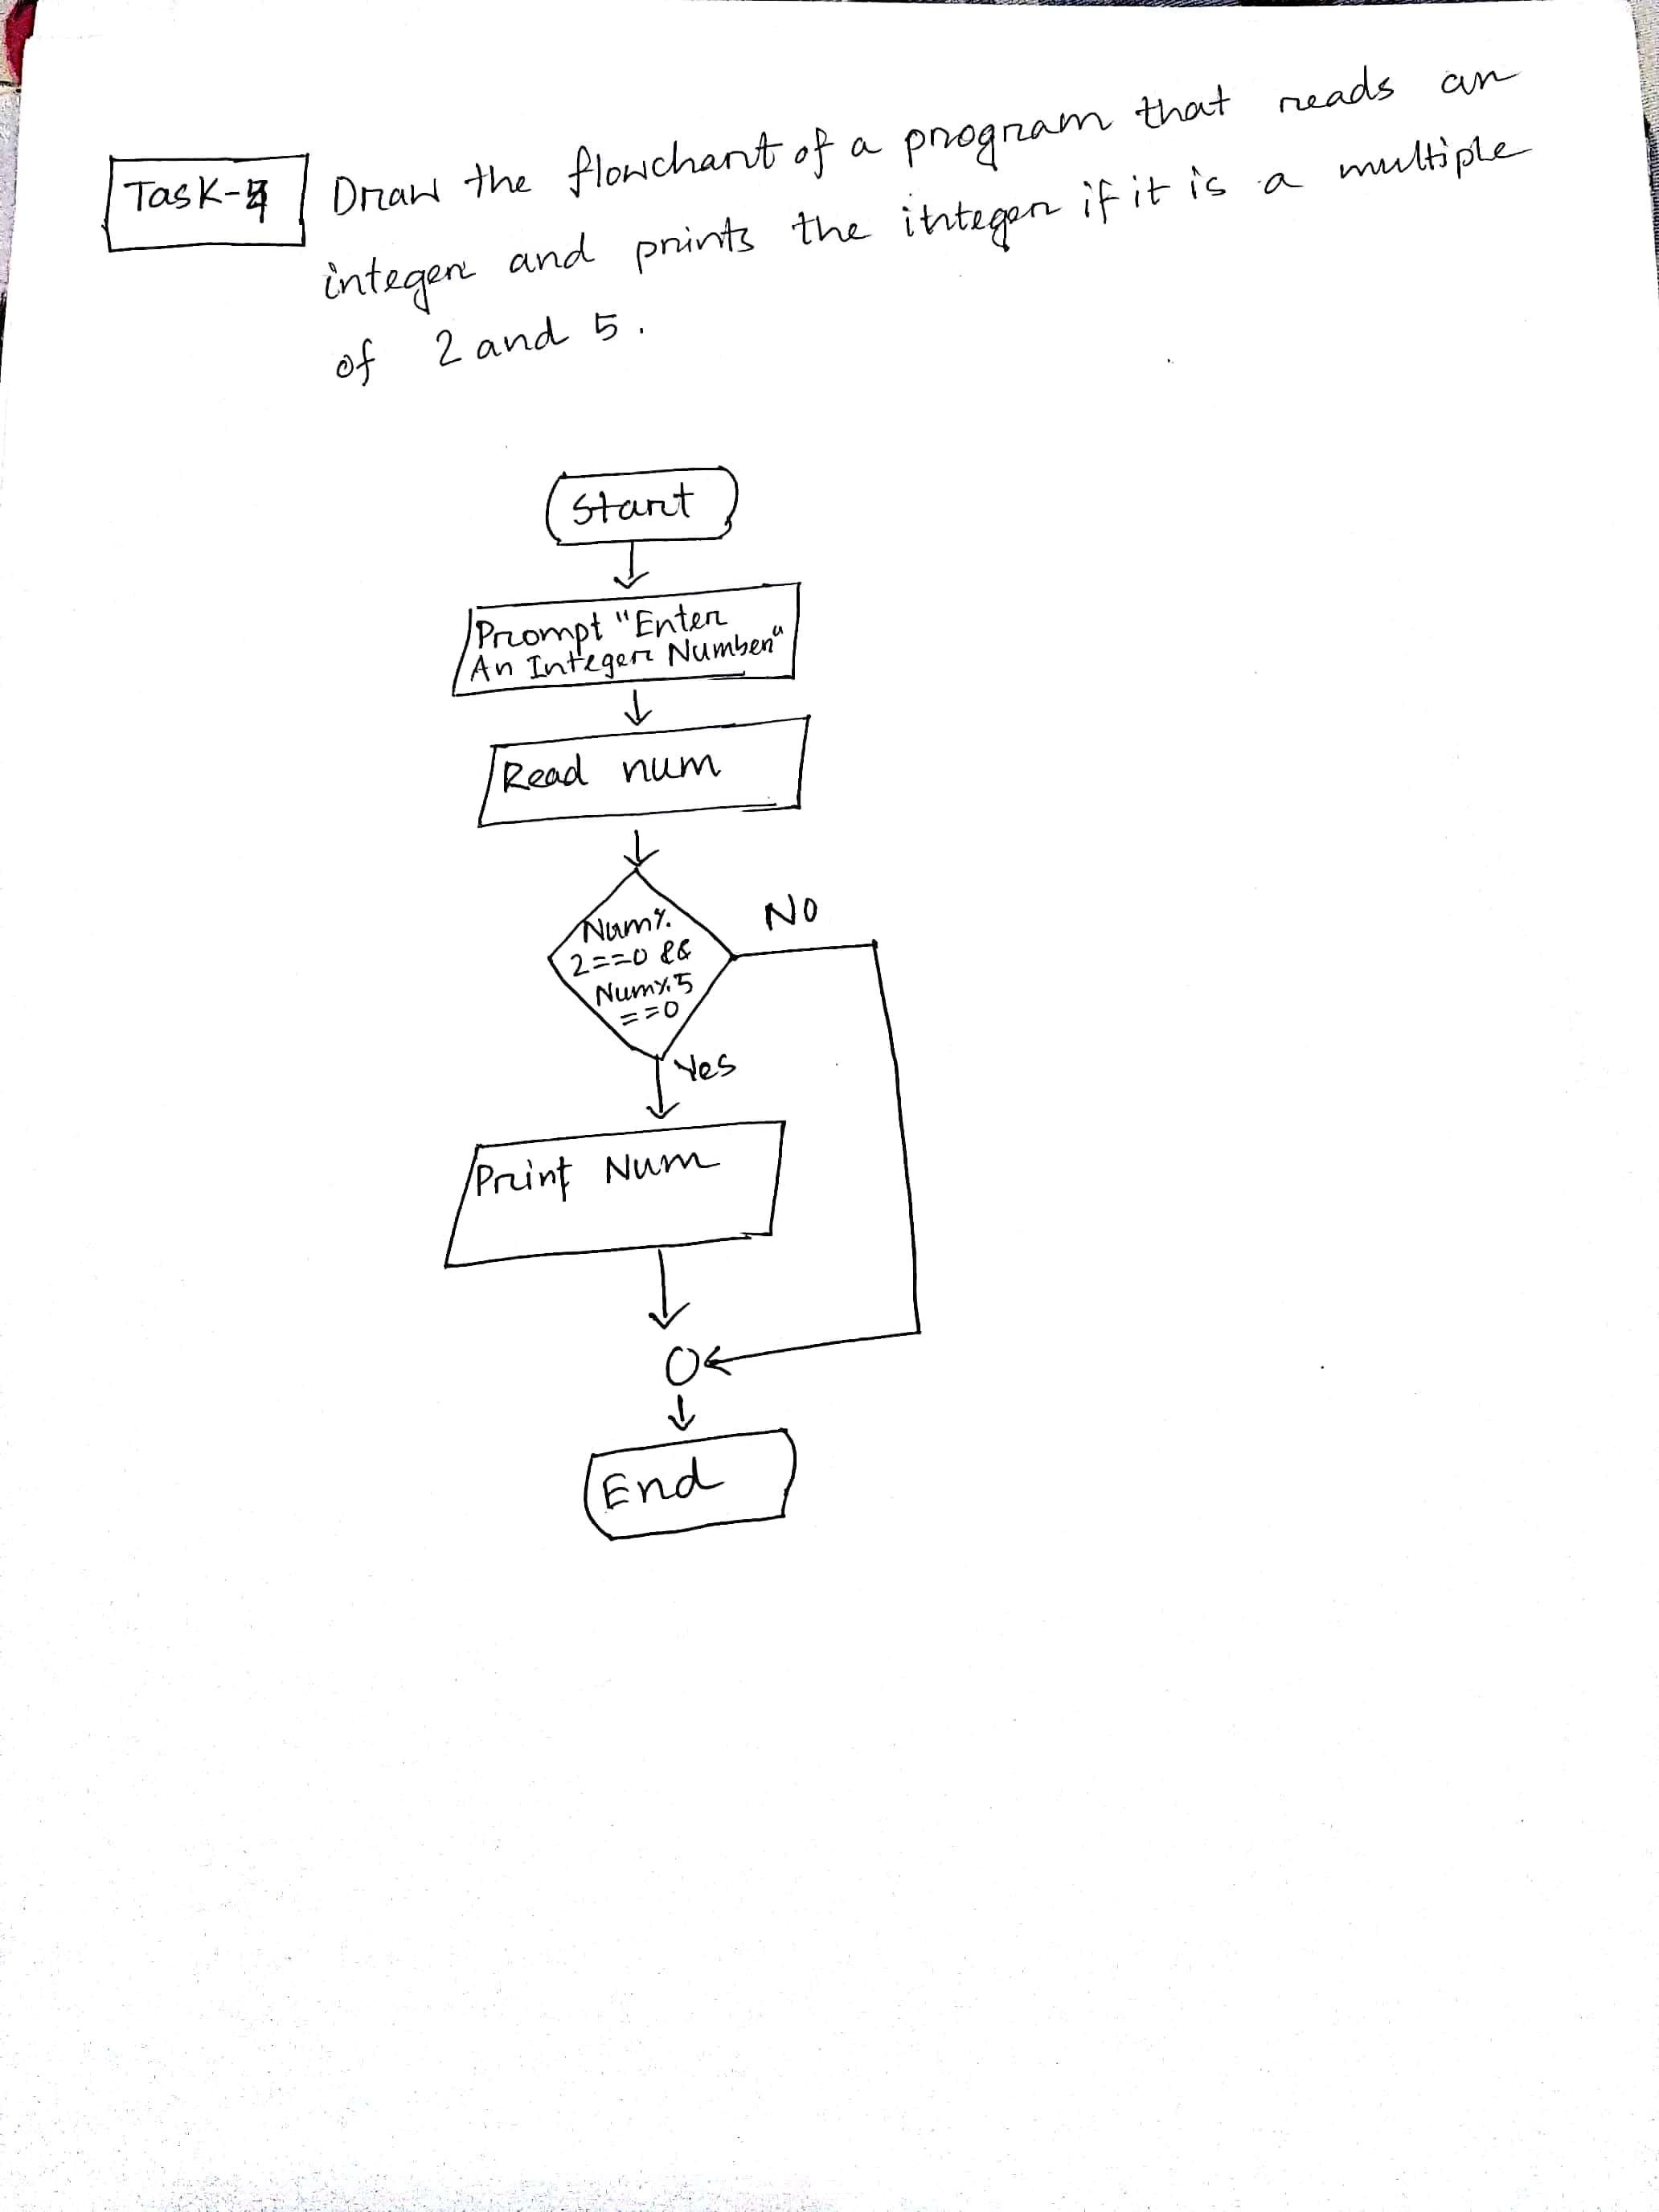 Task-4
Draw the flowchart of a program that reads an
integer and prints the integer if it is a multiple
of 2 and 5.
Start
Prompt "Enter
An Integer Number"
Read num
Num%
2==0 &&
Num%5
==0
No
Yes
Print Num
End